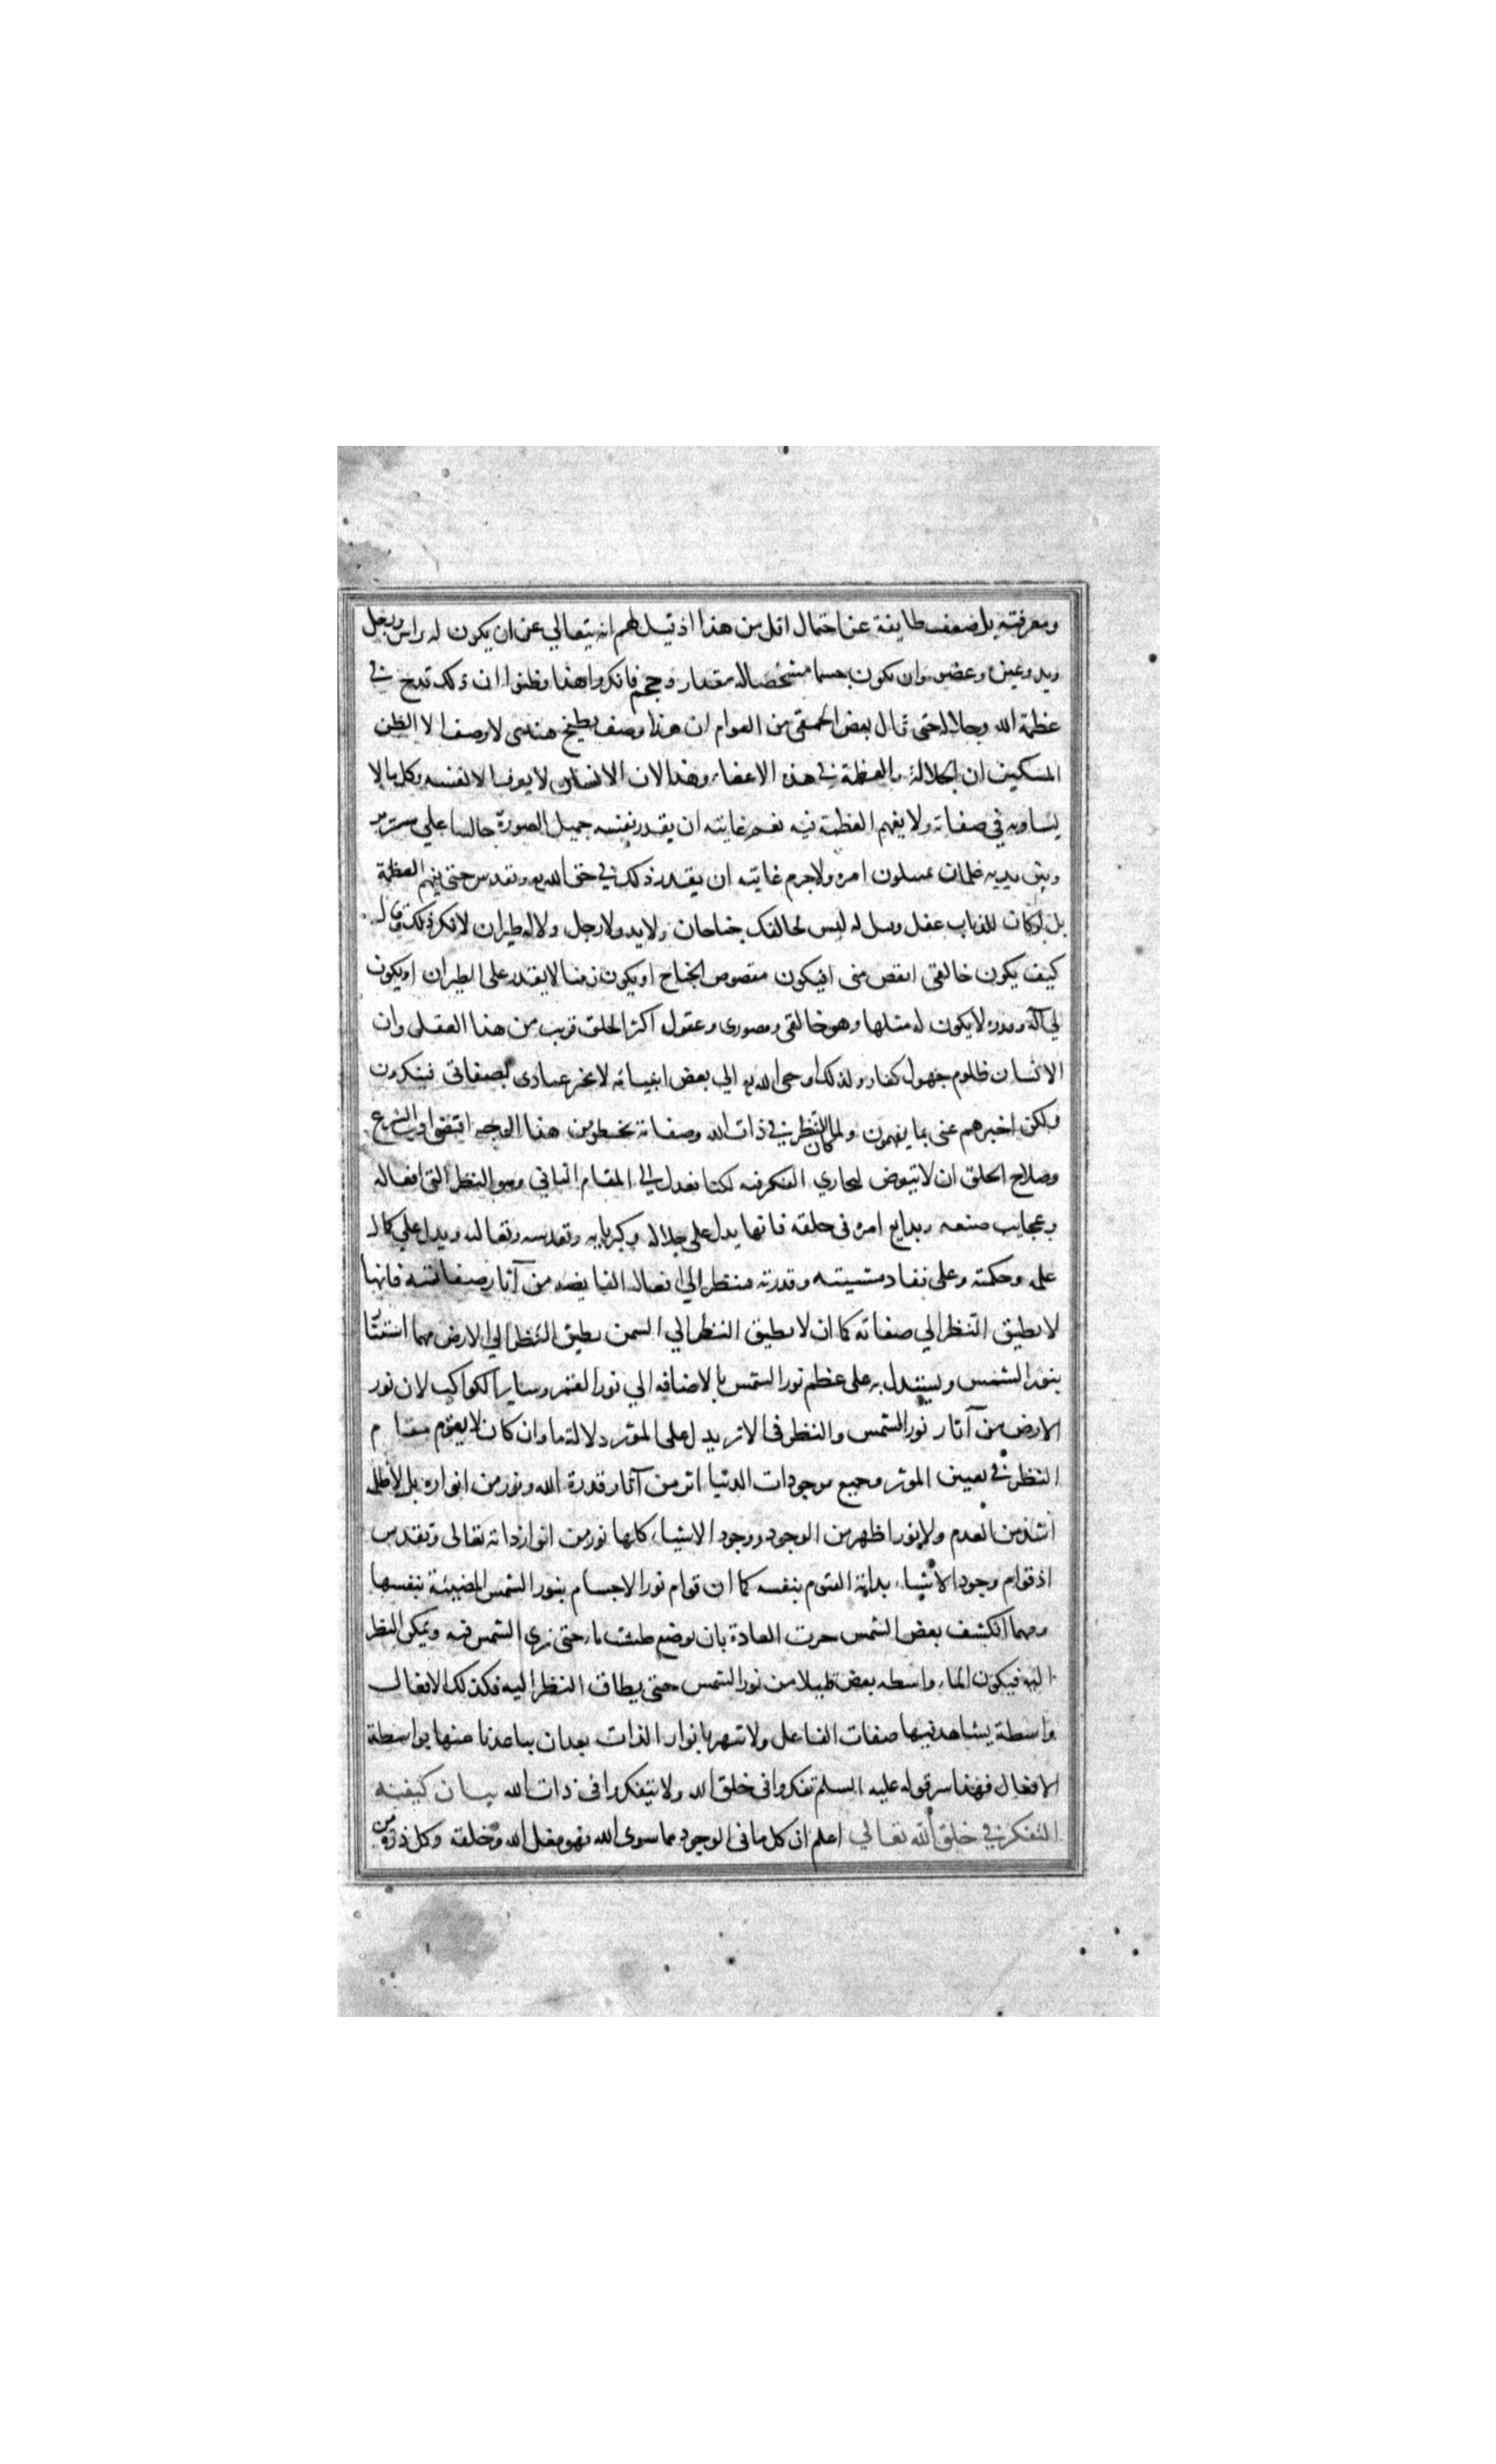 ومعرفته بل ضعف طايفة عن احتمال اقل من هذا اذ قيل لهم انه يتعالي عن ان يكون له راس ورجل
ويد وعين وعضو وان يكون جسما مشخصا له مقدار وحجم فانكروا هذا وظنوا ان ذلك قدح في
عظمة الله وجلاله حتى قال بعض الحمقى من العوام ان هذا وصف بطيخ هندى لا وصف الا الظن
المسكين ان الجلالة والعظمة في هذه الاعضاء وهذا لان الانسان لا يعرف الا نفسه وكل ما لا
يساويه في صفاته ولا يفهم العظمة فيه نعم غايته ان يقدر نفسه جميل الصورة جالسا علي سريره
وبين يديه غلمان يمسلون امره ولا جرم غايته ان يقدر ذلك في حق الله تع وتقدس حتى يفهم العظمة
بل لو كان للذباب عقل وقيل له ليس لخالقك جناحان ولا يد ولا رجل ولا له طيران لانكر ذلك وقال
كيف يكون خالقي انقص منى افيكون مقصوص الجناح او يكون زمنا لا يقدر على الطيران او يكون
لي آلة وقدرة لا يكون له مثلها وهو خالقى ومصورى وعقول اكثر الخلق قريب من هذا العقل وان
الانسان ظلوم جهول كفار ولذلك اوحى الله تع الي بعض انبيائه لا تخبر عبادى بصفاتى فينكرون
ولكن اخبرهم عنى بما يفهمون ولما كان النظر في ذات الله وصفاته مخطرا من هذا الوجه اقتضى ادب الشرع
وصلاح الخلق ان لا يتعرض لمجاري الفكر فيه لكنا نعدل الي المقام الثاني وهو النظر التي افعاله
وعجايب صنعه وبدايع امره فى خلقه فانها يدل على جلاله وكبريايه وتقديسه وتعاليه ويدل علي كمال
علمه وحكمته وعلى نفاد مشيته وقدرته فينظر الي افعاله الفايضه من آثار صفاته فانها
لا يطيق النظر الي صفاته كما ان لا يطيق النظر الي الشمس يطيق النظر الي الارض مهما استنارت
بنور الشمس ويستدل به على عظم نور الشمس بالاضافه الي نور القمر وساير الكواكب لان نور
الارض من آثار نور الشمس والنظر فى الاثر يدل على الموثر دلالة ما وان كان لا يقوم مقام
النظر في نفس الموثر وجميع موجودات الدنيا اثر من آثار قدرة الله ونور من انواره بل لا ظلمه
اشد من العدم ولا نورا ظهر من الوجود ووجود الاشياء كلها نور من انوار ذاته تعالى وتقدس
اذ قوام وجود الاشياء بذاته القيوم بنفسه كما ان قوام نور الاجسام بنور الشمس المضيئة بنفسها
ومهما انكشف بعض الشمس جرت العادة بان يوضع طشت ماء حتى نرى الشمس فيه ويمكن النظر
اليه فيكون الماء واسطه بعض قليلا من نور الشمس حتى يطاق النظر اليه فكذلك الافعال
واسطة يشاهد فيها صفات الفاعل ولا تبهر بانوار الذات بعد ان يباعدنا عنها بواسطة
الافعال فهذا سر قوله عليه السلم تفكروا فى خلق الله ولا تتفكروا فى ذات الله بيان كيفيته
التفكر في خلق الله تعالي اعلم ان كل ما فى الوجود مما سوى الله فهو فعل الله وخلقه وكل ذرة من